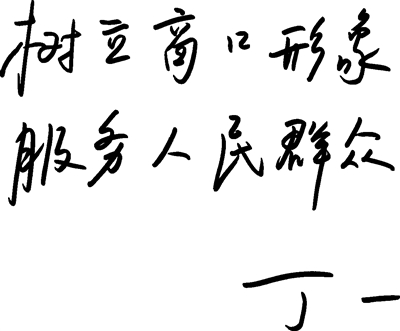 树立窗口形象
服务人民群众
丁一